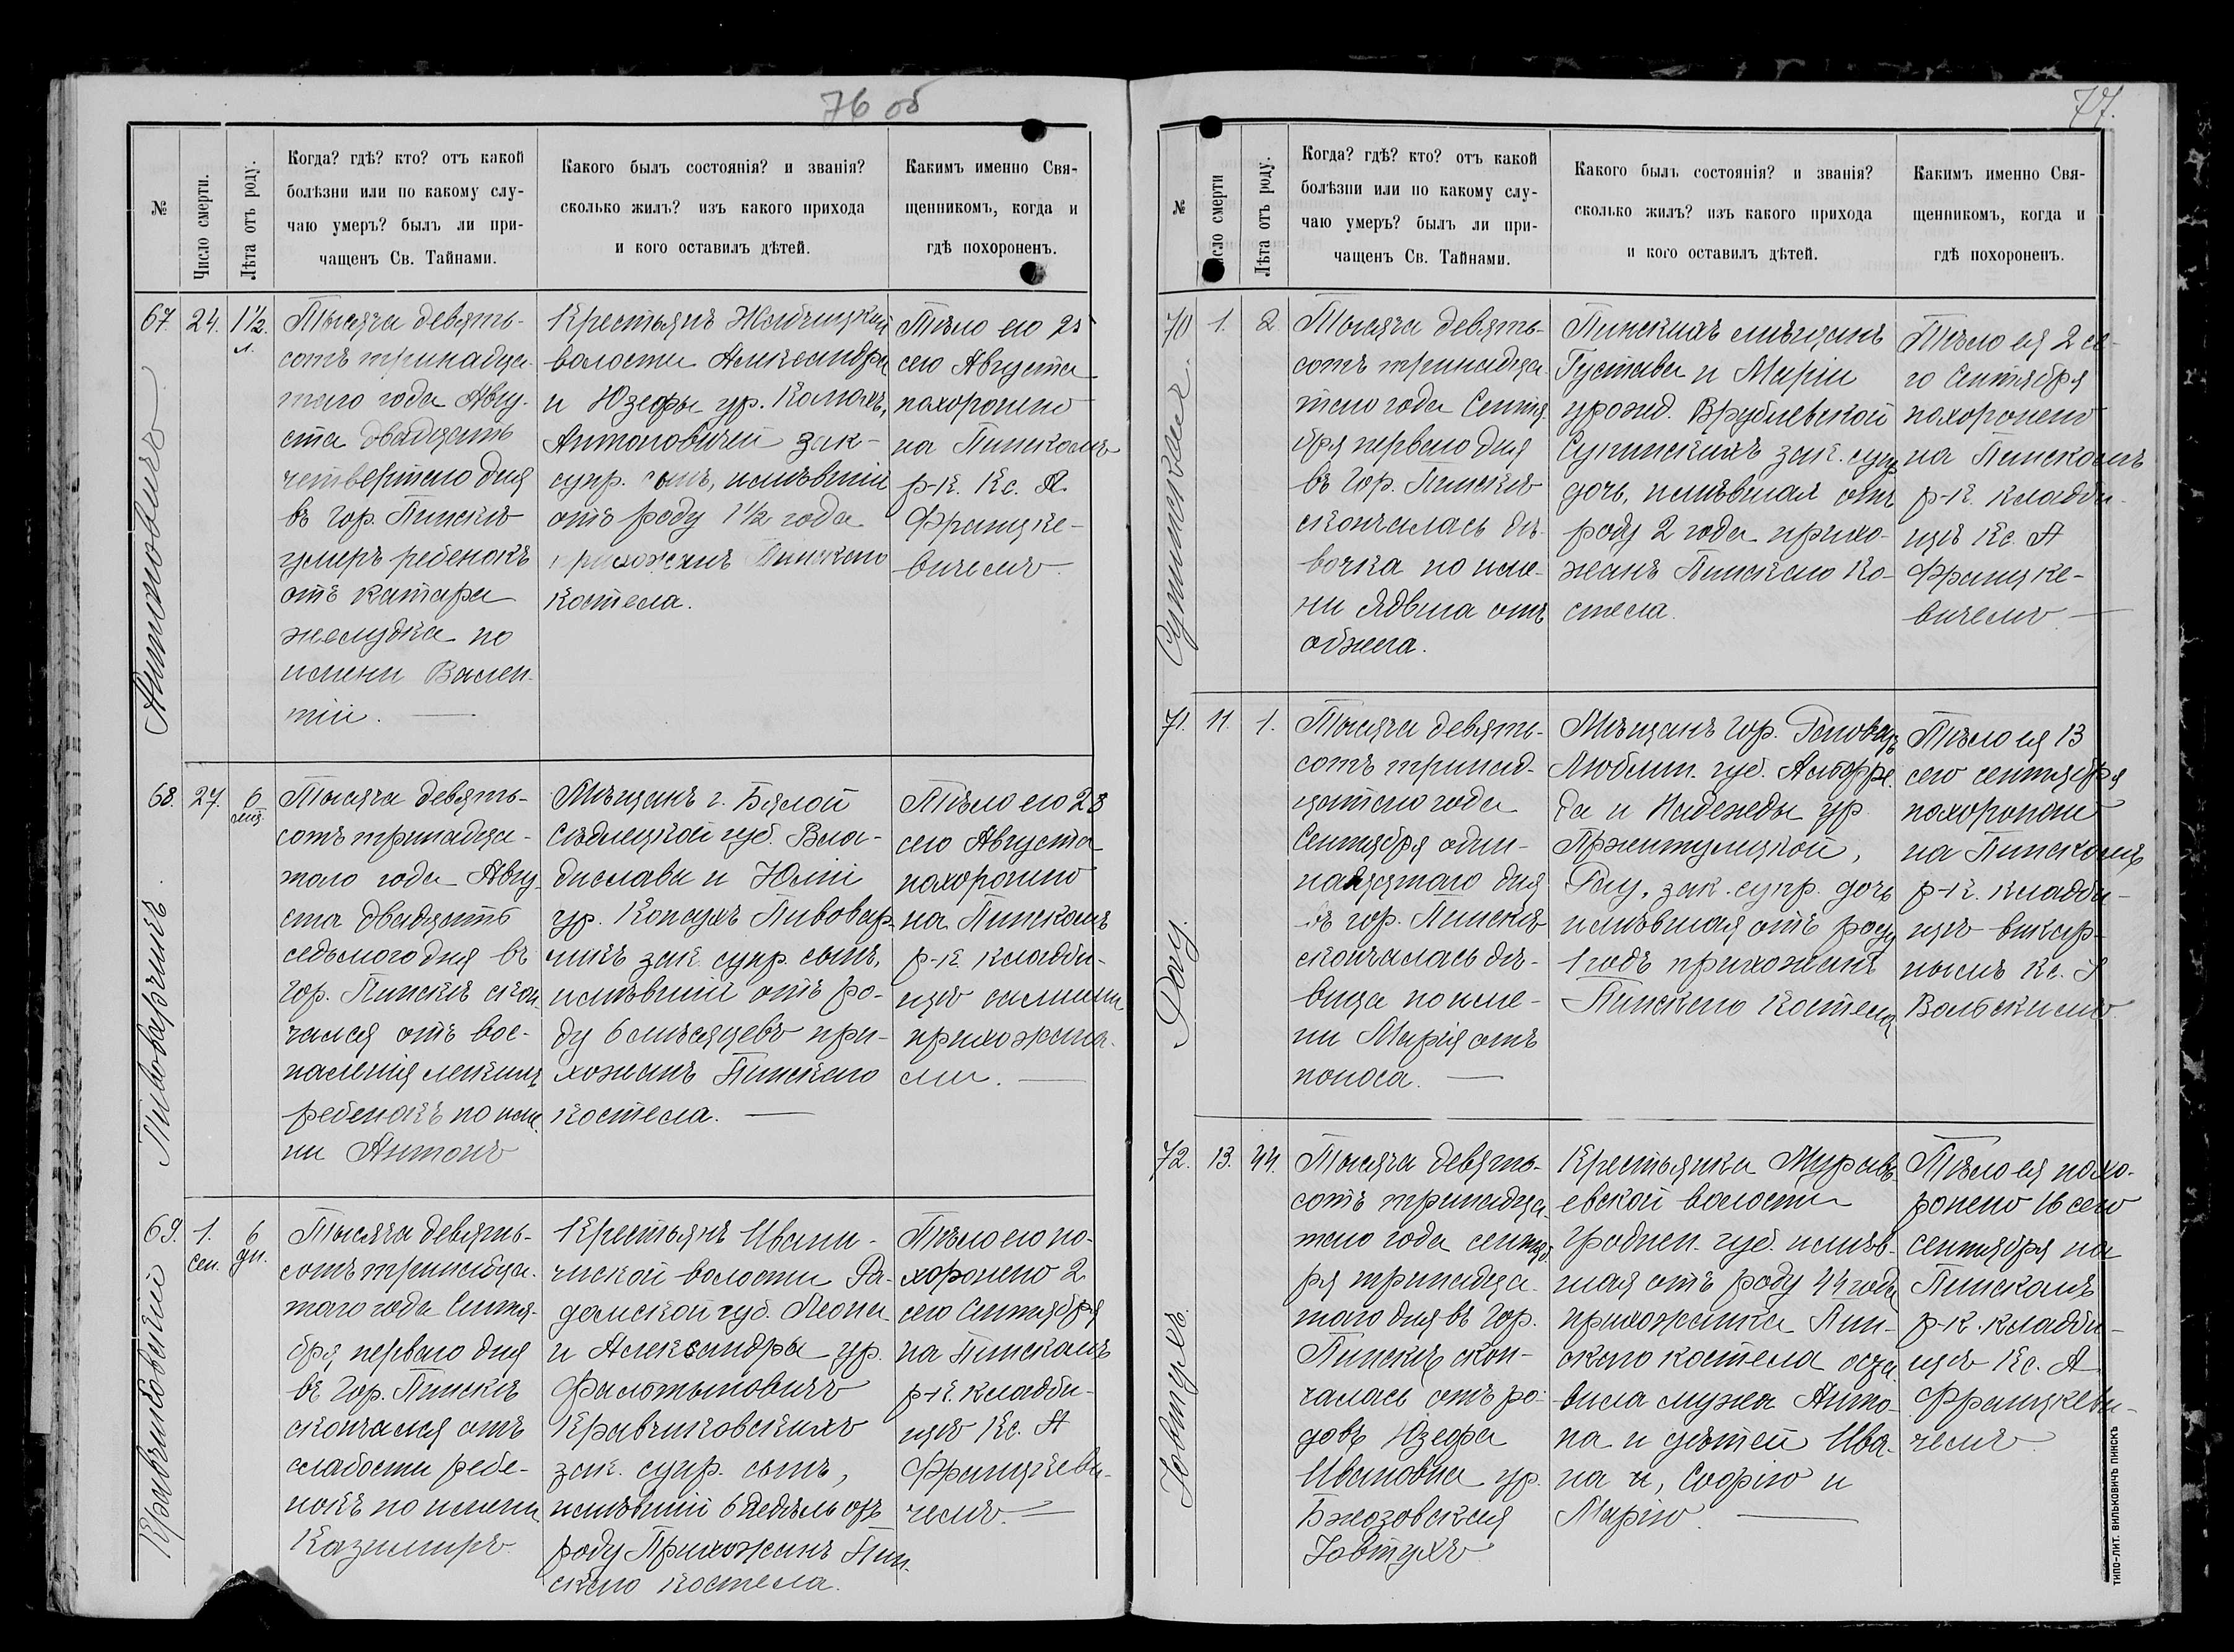 76 об
№
Число смерти.
Лѣта отъ роду.
Когда? гдѣ? кто? отъ какой
болѣзни или по какому слу-
чаю умеръ? былъ ли при-
чащенъ Св. Тайнами.
Какого былъ состоянія? и званія?
сколько жилъ? изъ какого прихода
и кого оставилъ дѣтей.
Какимъ именно Свя-
щенникомъ, когда и
гдѣ похороненъ.
67.
Антоновичъ
24.
1½
л.
Тысяча девять-
сотъ тринадца-
таго года Авгу-
ста двадцать
четвертаго дня
въ гор. Пинскѣ
умеръ ребенокъ
отъ катара
желудка по
имени Вален-
тій.
Крестьянъ Жабчицкой
волости Александра
и Юзефы ур.
Антоновичей зак-
супр. сынъ, имѣвшій
отъ роду 1½ года
прихожанъ Пинскаго
костела.
Тѣло его 25
сего Августа
похоронено
на Пинскомъ
р-к. Кс. А.
Францке-
вичемъ
68.
Пивоварчикъ
27.
6
мѣс.
Тысяча девять-
сотъ тринадца-
таго года Авгу-
ста двадцать
седьмого дня въ
гор. Пинскѣ скон-
чался отъ вос-
паленія легкихъ
ребенокъ по име-
ни Антонъ
Мѣщанъ г. Бялой
Сѣдлецкой губ. Вла-
дислава и Юліи
ур. Пивовар-
чикъ зак. супр. сынъ,
имѣвшій отъ ро-
ду 6 мѣсяцевъ при-
хожанъ Пинскаго
костела.
Тѣло его 28
сего Августа
похоронено
на Пинскомъ
р-к. кладби-
щѣ самими
прихожана-
ми.
69.
Кравчиковскій
1.
Сен.
6
дн.
Тысяча девять-
сотъ тринадца-
таго года Сентя-
бря перваго дня
въ гор. Пинскѣ
скончался отъ
слабости ребе-
нокъ по имени
Казимиръ
Крестьянъ Ивани-
чиской волости Ра-
домской губ. Леона
и Александры ур.
Фалотыновичъ
Кравчиковскихъ
зак. супр. сынъ,
имѣвшій 6 недѣль отъ
роду Прихожанъ Пин-
скаго костела.
Тѣло его по-
хоронено 2
сего Сентября
на Пинскомъ
р-к. кладби-
щѣ Кс. А
Францкеви-
чемъ.
77.
№
Число смерти
Лѣта отъ роду.
Когда? гдѣ? кто? отъ какой
болѣзни или по какому слу-
чаю умеръ? былъ ли при-
чащенъ Св. Тайнами.
Какого былъ состоянія? и званія?
сколько жилъ? изъ какого прихода
и кого оставилъ дѣтей.
Какимъ именно Свя-
щенникомъ, когда и
гдѣ похороненъ.
70
Супинская.
1.
2.
Тысяча девять-
сотъ тринадца-
таго года Сентя-
бря перваго дня
въ гор. Пинскѣ
скончалась дѣ-
вочка по име-
ни Ядвига отъ
обжога.
Пинскихъ мѣщанъ
Густава и Маріи
урожд. Врублевской
Супинскихъ зак. супр.
дочь, имѣвшая отъ
роду 2 года прихо-
жанъ Пинскаго Ко-
стела.
Тѣло ея 2 се-
го Сентября
похоронено
на Пинскомъ
р-к. кладби-
щѣ Кс. А
Францке-
вичемъ
71.
Рау.
11.
1.
Тысяча девять-
сотъ тринад-
цатаго года
Сентября один-
надцатаго дня
въ гор. Пинскѣ
скончалась дѣ-
вица по име-
ни Марія отъ
поноса.
Мѣщанъ гор.
Люблин. губ. Альфре-
да и Надежды ур.
Рау, зак. супр. дочь
имѣвшая отъ роду
1 годъ прихожанъ
Пинскаго Костела
Тѣло ея 13
сего сентября
похоронено
на Пинскомъ
р-к. кладби-
щѣ викар-
нымъ Кс. I
Вольскимъ
72.
Iовтухъ.
13.
44.
Тысяча девять-
сотъ тринадца-
таго года сентяб-
ря тринадца-
таго дня въ гор.
Пинскѣ скон-
чалась отъ ро-
довъ Юзефа
Ивановна ур.
Бжозовская
Iовтухъ
Крестьянка Муравь-
евской волости
Гроднен. губ. имѣв-
шая отъ роду 44 года
прихожанка Пин-
скаго костела оста-
вила мужа Анто-
на и дѣтей Ива-
на и, Софію и
Марію.
Тѣло ея похо-
ронено 16 сего
сентября на
Пинскомъ
р-к. кладби-
щѣ Кс. А
Францкеви-
чемъ
ТИПО-ЛИТ. ВИЛЬКОВИЧЪ ПИНСКЪ